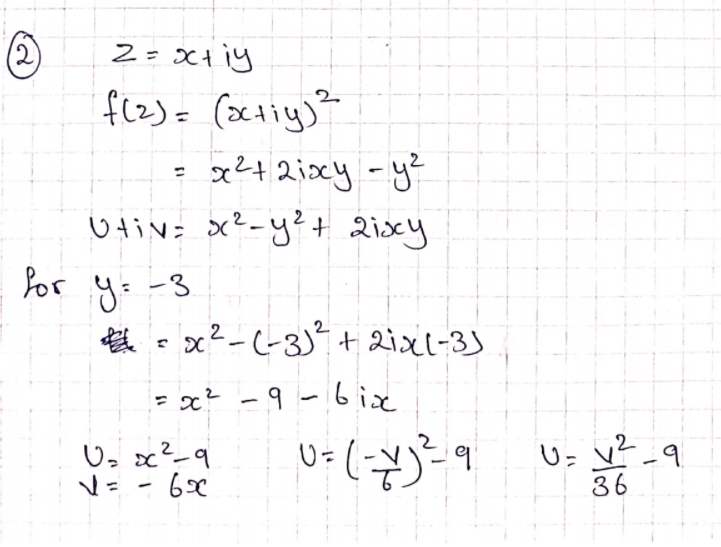 ② z = x+iy
f(z) = (x+iy)²
= x²+2ixy - y²
U+iv = x²-y²+ 2ixy
for y = -3
= x²-(-3)²+ 2ix(-3)
= x² - 9 - 6ix
U = x²-9 U = (-v/6)²-9 U = v²/36 - 9
v = - 6x